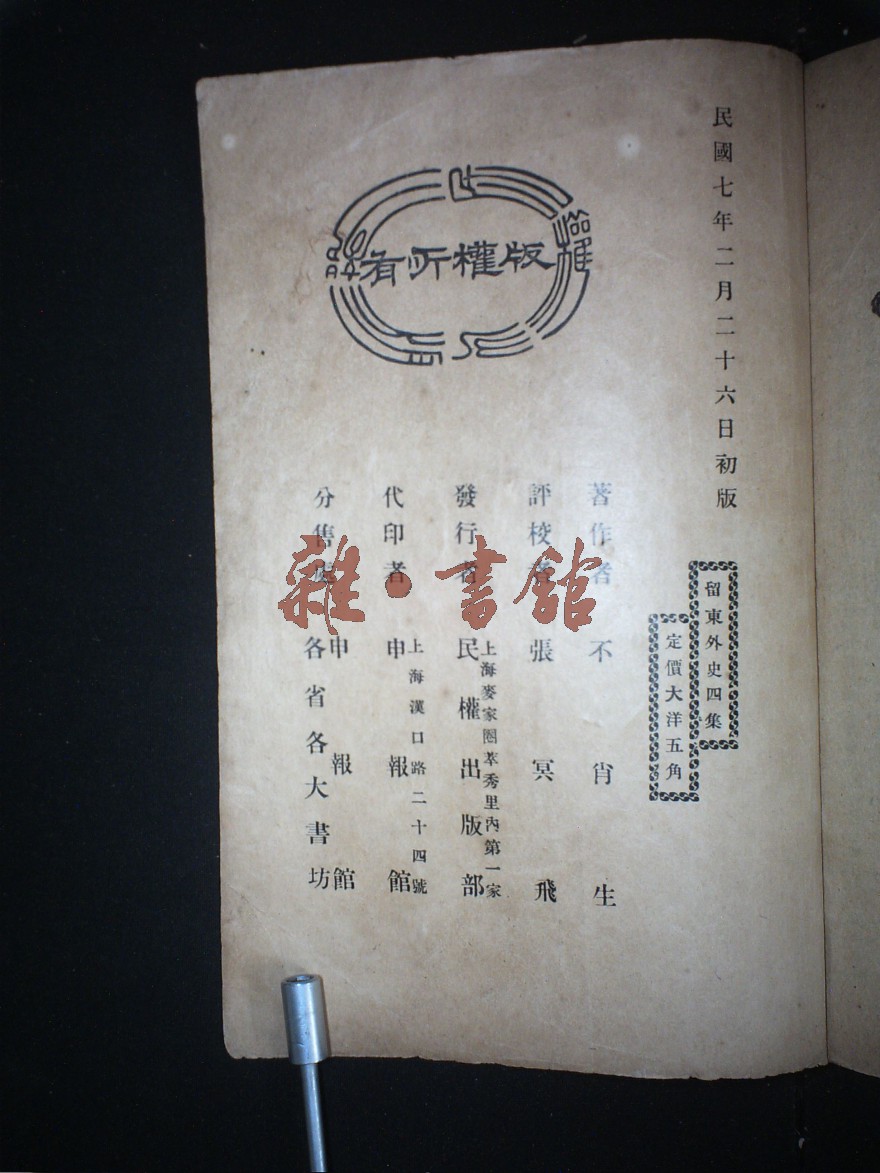 民國七年二月二十六日初版
留東外史四集
定價大洋五角
版權所有
著作者 不肖生
評校者 張冥飛
發行者 上海麥家圈萃秀里內第一家 民權出版部
代印者 上海漢口路二十四號 申報館
分售處 申報館
各省各大書坊
雜·書館